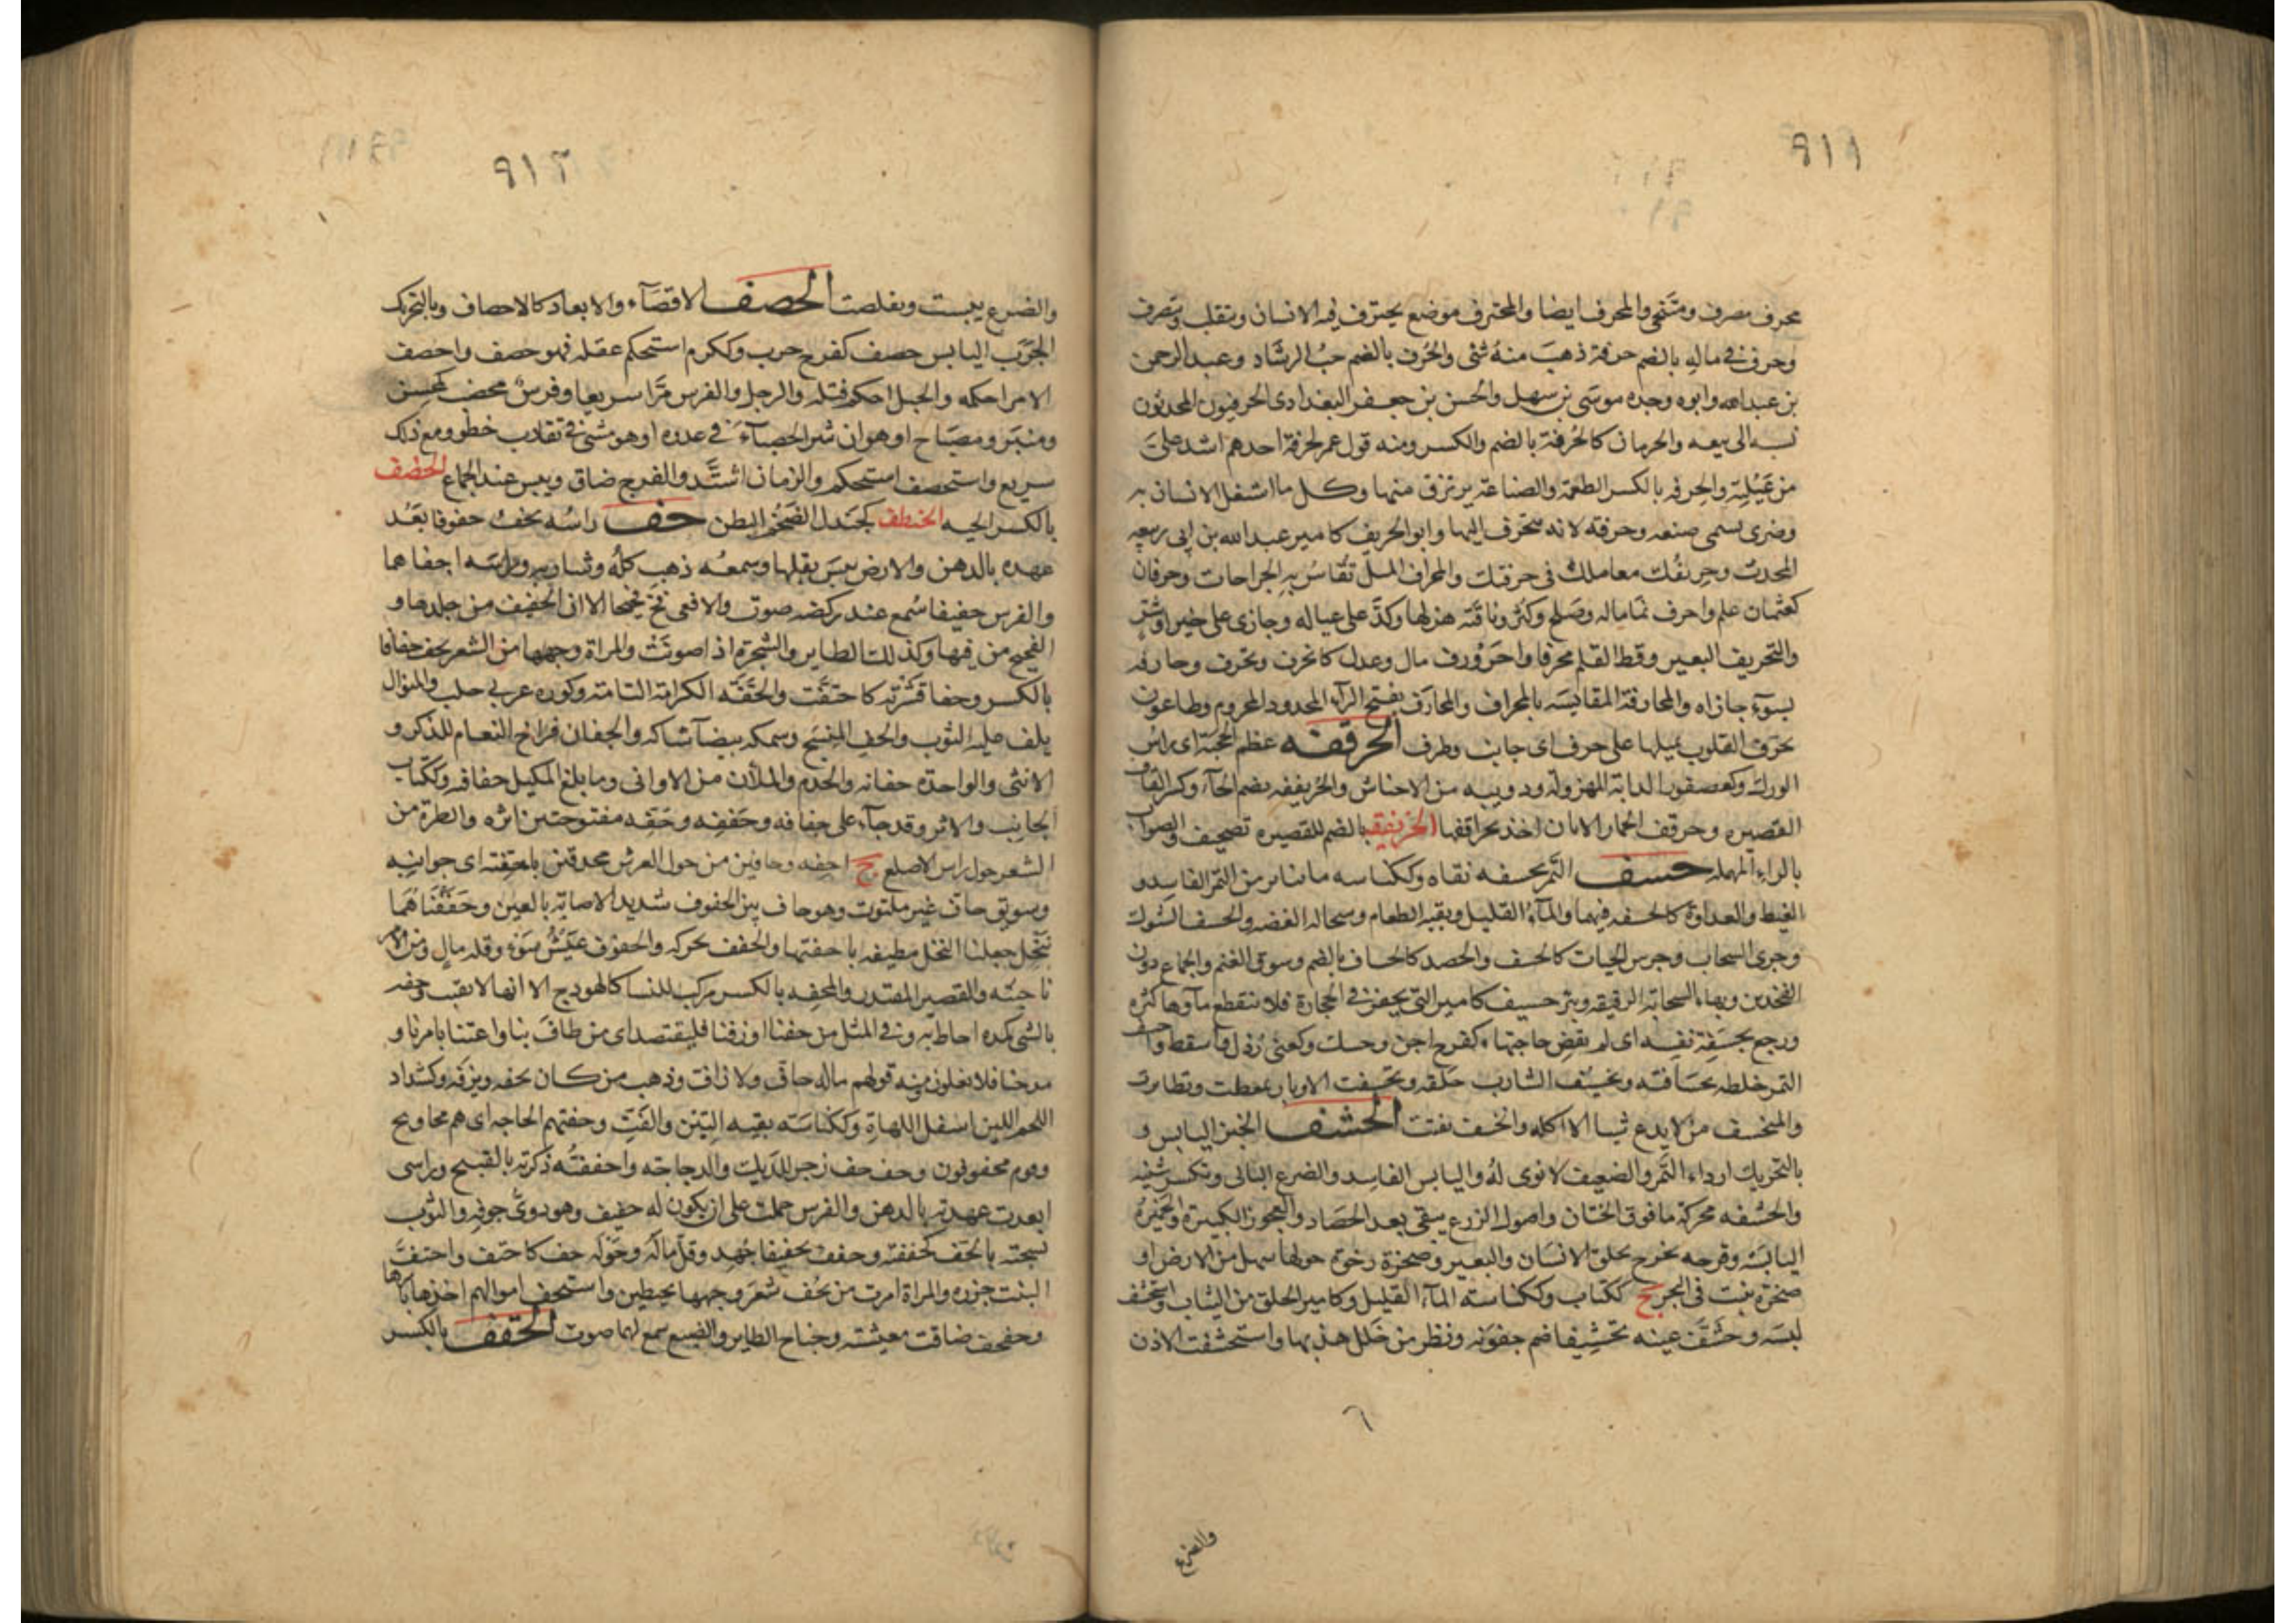 ٩١١
محرف مصرف ومتنحى والمحرف ايضا والمحترف موضع يحترف فيه الانسان ويتقلب ويتصرف
وحرف فى ماله بالضم حرفة ذهب منه شئ والحُرف بالضم حبُ الرشاد وعبد الرحمن
بن عبد الله وابوه وجده موسى بن سهل والحسن بن جعفر البغدادى الحرفيون المحدثون
نسبه الى بيعه والحرمان كالحُرفة بالضم والكسر ومنه قول عمر لحرفة احدهم اشد علىَّ
من عَيْلته والحرفه بالكسر الطعمة والصناعة يرتزق منها وكل ما اشتغل الانسان به
وضرى يسمى صنعه وحرفة لانه ينحرف اليها وابو الحريف كامير عبد الله بن ابى ربيعه
المحدث وحريفُك معاملك فى حرفتك والمحراف الميل تُقاسُ به الجراحات وحرفان
كعثمان علم واحرف نما ماله وصلح وكثر وناقته هزلها وكدَّ على عياله وجازى على خير او شر
والتحريف التغيير وقط القلم محرفا واحرَوْرف مال وعدل كانحرف وتحرف وحارفه
بسوء جازاه والمحارفة المقايسه بالمحراف والمحارَف بفتح الراء المحدود المحروم وطاعون
يحرف القلوب يميلها على حرف اى جانب وطرف الحرقفه عظم الحجبة اى راس
الورك وكعصفور الدابة المهزوله ودويبه من الاحناش والحُرنقفه بضم الحاء وكسر القاف
القصيره وحرقف الحمار الاتان اخذ بحراقفها الحرنقفه بالضم للقصيره تصحيف والصواب
بالراء المهمله حسف التمر يحسفه نقاه وككناسه ما تناثر من التمر الفاسد و
الغيظ والعداوة كالحسفه فيهما والماء القليل وبقيه الطعام وسحاله الفضه والحسف الشوك
وجرى السحاب وجرس الحيات كالحسف والحصد كالحساف بالضم وسوق الغنم والجماع دون
الفخذين وبهاء السحابه الرقيقه وبئر حسيف كامير التى تحفر فى الحجارة فلا ينقطع ماؤها كثره
ورجع بحسَيفة نفسه اى لم يقض حاجتها وكفرح اجن وحسك وكعنى رُذل واُسقط واحسف
التمر خلطه بحسافته وتحسيف الشارب حلقه وتحسفت الاوبار تمعطت وتطايرت
والمنحسف من لا يدع شيا الا اكله وانحسف تفتت الحشف الخبز اليابس و
بالتحريك اردا التمر والضعيف لا نوى لهُ واليابس الفاسد والضرع البالى وتكسر شينه
والحشفه محركة ما فوق الختان واصول الزرع يبقى بعد الحصاد والعجوز الكبيرة والخميرة
اليابسه وقرحه تخرج بحلق الانسان والبعير وصخرة رخوة حولها سهل من الارض او
صخرة تنبت فى البحر ج ككتاب وككناسه الماء القليل وكامير الخلق من الثياب واستحشف
لبسه وحشَّفَ عينه تحشيفا ضم جفونه ونظر من خلل هدبها واستحشفت الاذن
والضرع
٩١٢
والضرع يبست وتقلصت الحصف الاقصاء والابعاد كالاحصاف وبالتحريك
الجرَب اليابس حصف كفرح جرب وككرم استحكم عقله فهو حصف واحصف
الامر احكمه والحبل احكم فتله والرجل والفرس مرَّا سريعا وفرسٌ محصف كمحسن
ومنبر ومصباح او هو ان يثير الحصباء فى عدوه او هو مشى فى تقارب خطو ومع ذلك
سريع واستحصف استحكم والزمان اشتدَّ والفرج ضاق ويبس عند الجماع الحضف
بالكسر الحيه الحنطف كجندل الضخم البطن حف راسُه يحفُ حفوفا بَعُد
عهده بالدهن والارض يبس بقلها وسمعُه ذهب كلُه وشاربه وراسه احفاهما
والفرس حفيفا سُمع عند ركضه صوت والافعى فحَّ فحيحها الا ان الحفيف من جلدها و
الفحيح من فيها وكذلك الطاير والشجرة اذا صوتَتْ والمراة وجهها من الشعر تحف حفافا
بالكسر وحفا قَشَرَته كاحتفَّت والحَفَّه الكرامة التامه وكوره غربى حلب والمنوال
يلف عليه الثوب والحف المنسج وسمكه بيضا شاكه والحفان فراخ النعام للذكر و
الانثى والواحده حفانه والخدم والملآن من الاوانى وما بلغ المكيل حفافيه وككتاب
الجانب والاثر وقد جاء على حفافه وحَففه وحَفِّه مفتوحتين اثره والطرة من
الشعر حول راس الاصلع ج احفه وحافين من حول العرش محدقين باحفته اى جوانبه
وسويق حاف غير ملتوت وهو حاف بين الحفوف شديد الاصابة بالعين وحَفَفْنَاهُمَا
بنخل جعلنا النخل مطيفه باحفتها والحفف محركه والحفوف عَيْشُ سَوءٍ وقله مال ومن الامر
ناحيته والقصير المقتدر والمحفه بالكسر مركب للنسا كالهودج الا انها لا تقبب وحفه
بالشى كمده احاط به وفى المثل من حفنا او رفنا فليقتصد اى من طاف بنا واعتنا بامرنا و
مدحنا فلا يغلون ومنه قولهم ماله حاف ولا راف وذهب من كان يحفه ويرفه وكشداد
اللحم اللين اسفل اللهاة وككناسَته بقيه التبن والقتِّ وحفتهم الحاجه اى هم محاويج
وقوم محفوفون وحف حف زجر للديك والدجاجه واحففتُه ذكرته بالقبيح وراسى
ابعدت عهدته بالدهن والفرس حملته على ان يكون له حفيف وهو دوىُّ جوفه والثوب
نسجته بالحَف كحففته وحفف تحفيفا جُهِد وقلَّ ماله وحَوْلَه حف كاحتف واحتفت
النبت جزره والمراة امرت من تحُف شعرَ وجهها بخيطين واستحف اموالهم اخذها باسرها
وحفحف ضاقت معيشته وجناح الطاير والضبع سمع لهما صوت الحقف بالكسر